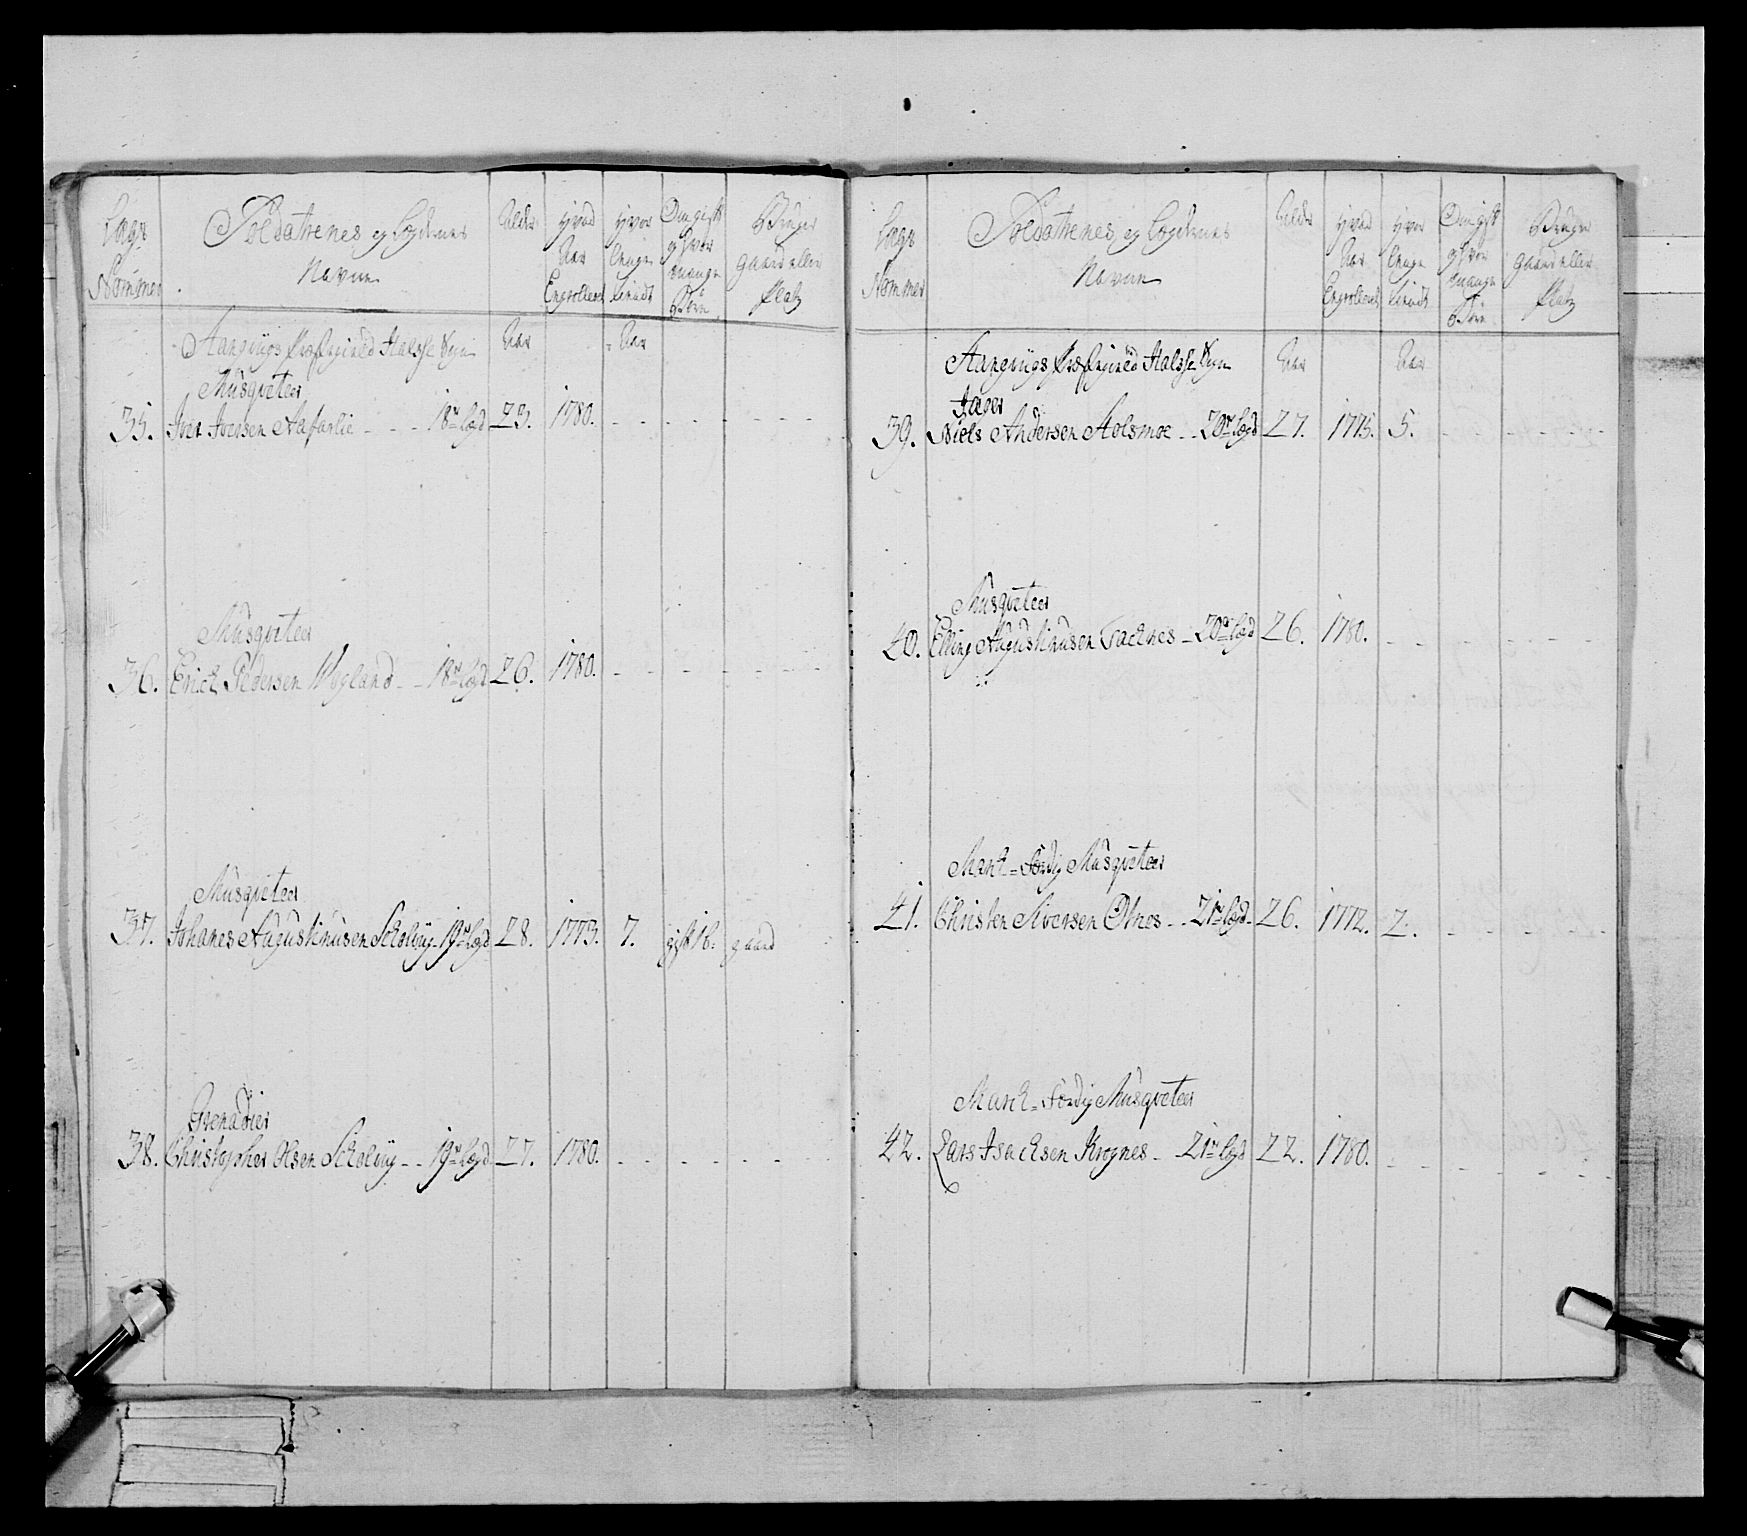 Lægs Nummer
Soldaternes og Lægdernes Navne
Alder
Hvad Aar Engrolleret
Hvor længe tient
Om gift og hvor mange Børn
Bruger gaard eller Platz
Præstegield Halsse Sogn
Aar
Aar
Musqveteer
35. Iver Iversen Aafarlie - - - 18de Lægd 23. 1780. - - - - - - - -
Musqveteer
36. Erich Pedersen Wogland - - 18de Lægd 26. 1780. - - - - - - -
Musqveteer
37. Johanes Augustinusen Skolvüg - 19de Lægd 28. 1773. 7. gift 1 b: gaard
Grenadier
38. Christopher Olsen Skolvüg - - 19de Lægd 27. 1780. - - - - - - -
Lægs Nummer
Soldaternes og Lægdernes Navne
Alder
Hvad Aar Engrolleret
Hvor længe tient
Om gift og hvor mange Børn
Bruger gaard eller Platz
Præstegield Halsse Sogn
Aar
Aar
39. Niels Andersen Aolsmoe - - 20de Lægd 27. 1775. 5. - - - - - - -
Musqveteer
40. Elling Augustinusen - 20de Lægd 26. 1780. - - - - - - -
March-Færdig Musqveteer
41. Christen Siversen Otnes - - 21de Lægd - 26. 1772. 2. - - - - - -
March-Færdig Musqveteer
42. Lars Isachsen Krognes - 21de Lægd 22. 1780. - - - - - - -